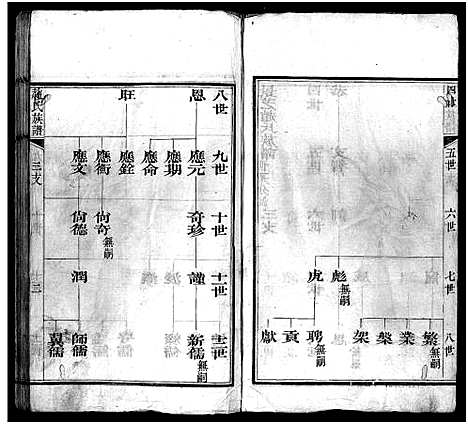 五世
六世
七世
彪無嗣
虎
八世
繁無嗣
業
槃
架
聘無嗣
貢
獻
氏族譜
三支
十二
八世
恩
旺
九世
應元
應期
應侖
應銓
應衡
應文
十世
奇珍
尙奇無嗣
尙德
十一世
謹
潤
十二世
新儒無嗣
師儒
翼儒